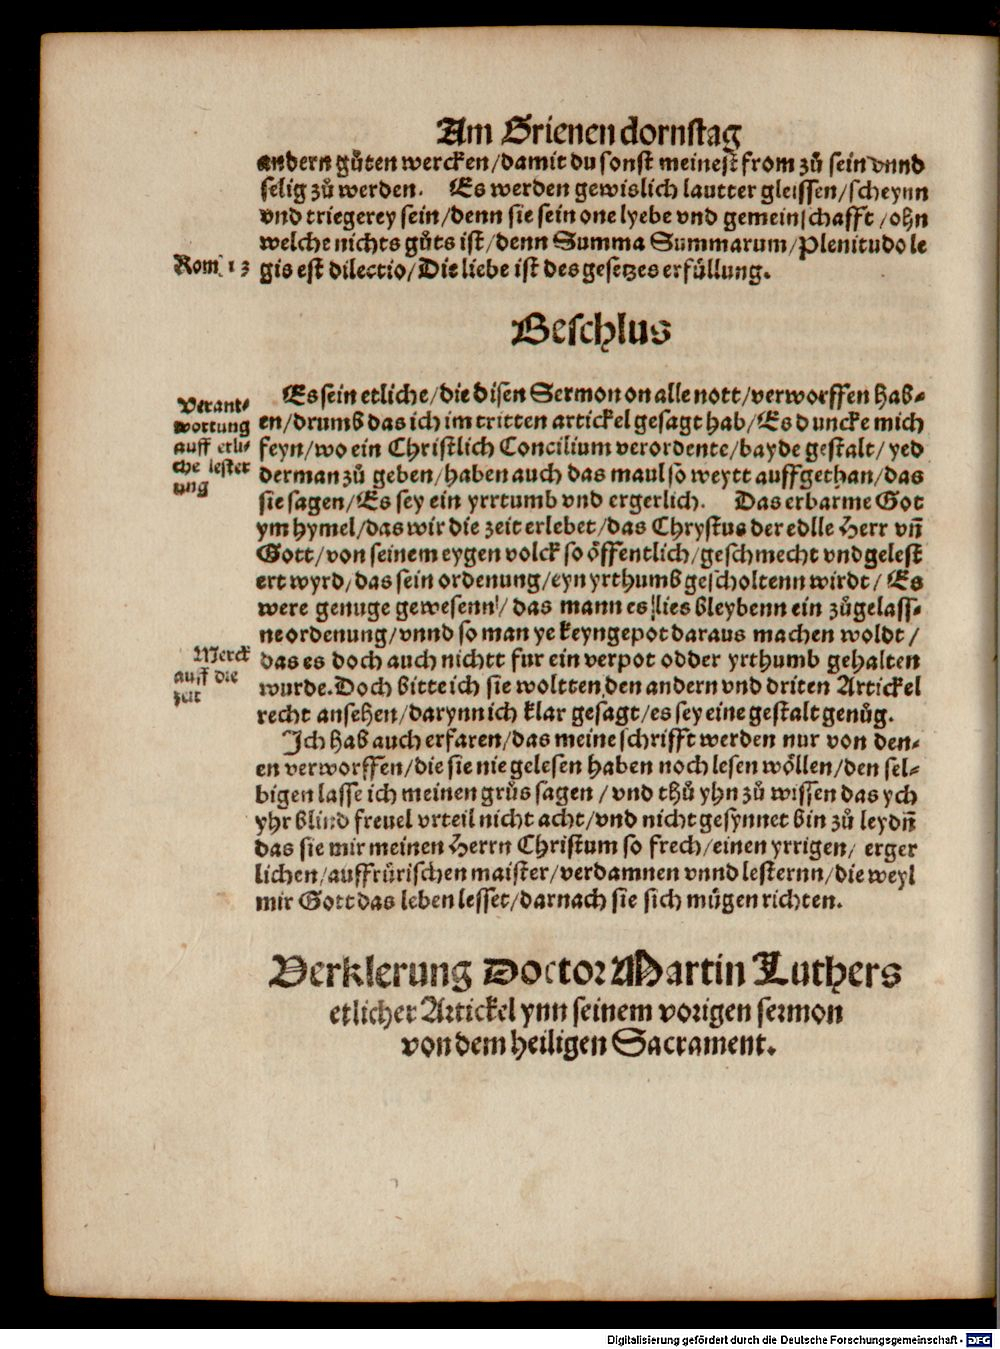 Am Grienen dornstag
andern gůten wercken/damit du sonst meinest from zů sein vnnd
selig zů werden. Es werden gewislich lautter gleissen/scheynn
vnd triegerey sein/denn sie sein one lyebe vnd gemeinschafft/ohn
welche nichts gůts ist/denn Summa Summarum/Plenitudo le
Rom 13
gis est dilectio/Die liebe ist des gesetzes erfüllung.
Beschlus
Verant-
wortung
auff etli-
che lester
ung
Es sein etliche/die disen Sermon on alle nott/verworffen hab-
en/drumb das ich im tritten artickel gesagt hab/Es duncke mich
feyn/wo ein Christlich Concilium verordente/bayde gestalt/yed
derman zů geben/haben auch das maul so weytt auffgethan/das
sie sagen/Es sey ein yrrtumb vnd ergerlich. Das erbarme Got
ym hymel/das wir die zeit erlebet/das Chrystus der edlle Herr vñ
Gott/von seinem eygen volck so öffentlich/geschmecht vnd gelest
ert wyrd/das sein ordenung/eyn yrthumb gescholtenn wirdt/Es
were genuge gewesenn/das mann es lies bleybenn ein zůgelass-
ne ordenung/vnnd so man ye keyn gepot daraus machen woldt/
Merck
auff die
zeit
das es doch auch nichtt fur ein verpot odder yrthumb gehalten
wurde. Doch bitte ich sie woltten den andern vnd driten Artickel
recht ansehen/darynn ich klar gesagt/es sey eine gestalt genůg.
Ich hab auch erfaren/das meine schrifft werden nur von den-
en verworffen/die sie nie gelesen haben noch lesen wöllen/den sel-
bigen lasse ich meinen grůs sagen/vnd thů yhn zů wissen das ych
yhr blind freuel vrteil nicht acht/vnd nicht gesynnet bin zů leydñ
das sie mir meinen Herrn Christum so frech/einen yrrigen/erger
lichen/auffrürischen maister/verdamnen vnnd lesternn/die weyl
mir Gott das leben lesset/darnach sie sich mügen richten.
Verklerung Doctor Martin Luthers
etlicher Artickel ynn seinem vorigen sermon
von dem heiligen Sacrament.
Digitalisierung gefördert durch die Deutsche Forschungsgemeinschaft - DFG